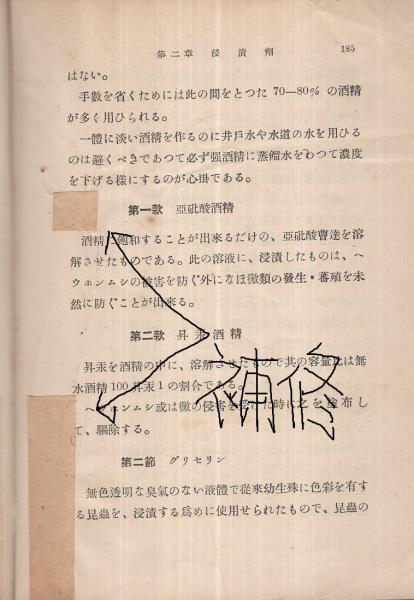 第二章 浸漬劑 185
はない。
手數を省くためには此の間をとつた 70—80% の酒精
が多く用ひられる。
一體に淡い酒精を作るのに井戶水や水道の水を用ひる
のは避くべきであつて必ず强酒精に蒸餾水をわつて濃度
を下げる樣にするのが心掛である。
第一款 亞砒酸酒精
酒精に飽和することが出來るだけの、亞砒酸曹達を溶
解させたものである。此の溶液に、浸漬したものは、ヘ
ウホンムシの被害を防ぐ外になほ黴類の發生・蕃殖を未
然に防ぐことが出來る。
第二款 昇汞酒精
昇汞を酒精の中に、溶解させたもので其の容量比は無
水酒精100昇汞1の割合である。
ヘウホンムシ或は黴の侵害を受けた時に之を塗布し
て、驅除する。
補修
第二節 グリセリン
無色透明な臭氣のない液體で從來幼生殊に色彩を有す
る昆蟲を、浸漬する爲めに使用せられたもので、昆蟲の